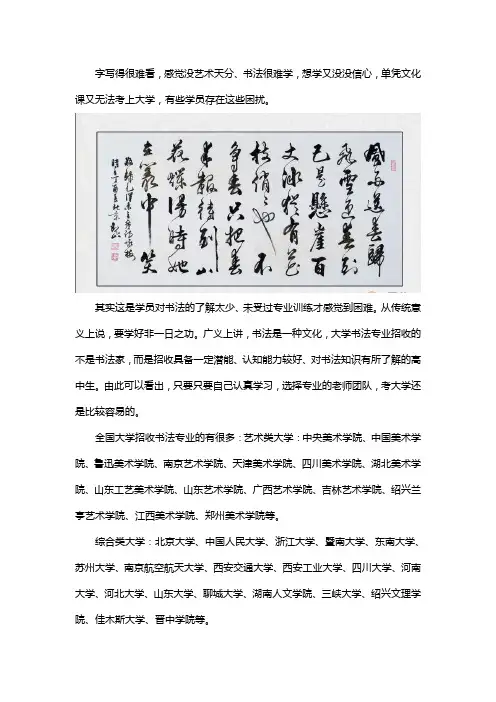 字写得很难看，感觉没艺术天分、书法很难学，想学又没没信心，单凭文化
课又无法考上大学，有些学员存在这些困扰。
風雨送春歸
飛雪迎春到
已是懸崖百
丈冰猶有花
枝俏々也不
爭春只把春
來報待到山
花爛漫時她
在叢中笑
其实这是学员对书法的了解太少、未受过专业训练才感觉到困难。从传统意
义上说，要学好非一日之功。广义上讲，书法是一种文化，大学书法专业招收的
不是书法家，而是招收具备一定潜能、认知能力较好、对书法知识有所了解的高
中生。由此可以看出，只要只要自己认真学习，选择专业的老师团队，考大学还
是比较容易的。
全国大学招收书法专业的有很多：艺术类大学：中央美术学院、中国美术学
院、鲁迅美术学院、南京艺术学院、天津美术学院、四川美术学院、湖北美术学
院、山东工艺美术学院、山东艺术学院、广西艺术学院、吉林艺术学院、绍兴兰
亭艺术学院、江西美术学院、郑州美术学院等。
综合类大学：北京大学、中国人民大学、浙江大学、暨南大学、东南大学、
苏州大学、南京航空航天大学、西安交通大学、西安工业大学、四川大学、河南
大学、河北大学、山东大学、聊城大学、湖南人文学院、三峡大学、绍兴文理学
院、佳木斯大学、晋中学院等。